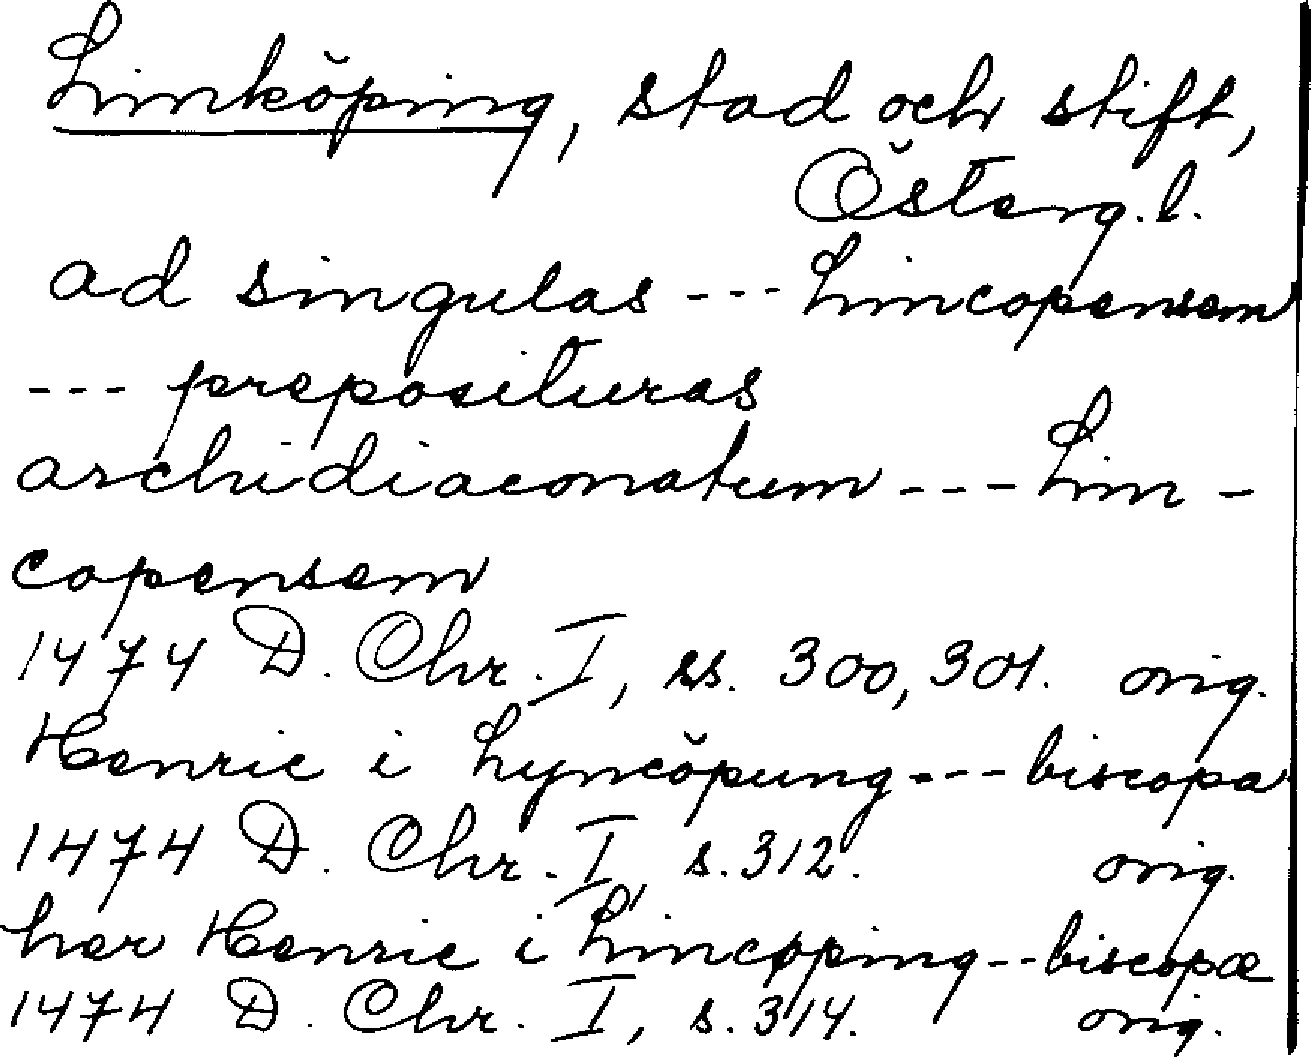 Linköping, stad och stift,
Österg. l.
ad singulas --- Lincopensem
--- preposituras
archidiaconatum --- Lin-
copensem
1474 D. Chr. I, ss. 300, 301. orig.
Henric i Lyncöpung --- biscopa
1474 D. Chr. I, s. 312. orig.
her Henric i Lincøping -- biscopæ
1474 D. Chr. I, s. 314. orig.